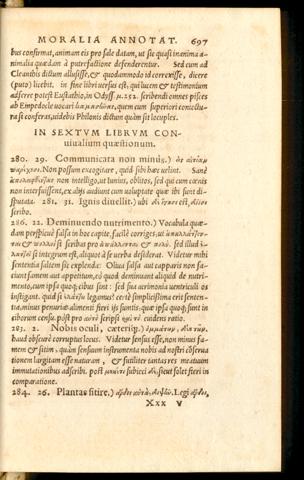 MORALIA ANNOTAT. 697
bus confirmat, animam eis pro sale datam, ut sic quasi inanima a-
nimalia quædam à putrefactione defenderentur. Sed cum ad
Cleanthis dictum allusisse, & quodammodo id correxisse, dicere
(puto) licebit. in fine libri versus est, qui lucem & testimonium
adferre potest Eustathio, in Odyss. μ. 252. scribendi omnes pisces
ab Empedocle vocari quem cum superiori coniectu-
ra si conferas, uidebis Philonis dictum quàm sit locuples.
IN SEXTVM LIBRVM CON-
uiualium quæstionum.
280. 29. Communicata non minus.)
Non possum excogitare, quid sibi hæc uelint. Sanè
non intelligo, ut lunius, oblitos, sed qui cum cænis
non interfuissent, ex alijs audiunt cum uoluptate quæ ibi sunt di-
sputata. 281. 31. Ignis diuellit.) ubi
scribo.
286. 22. Deminuendo nutrimento.) Vocabula quæ-
dam perspicuè falsa in hoc capite, facilè corriges, ut
& si scribas pro & Sed illud
si integrum est, aliquot à se uerba desiderat. Videtur mihi
sententia saltem sic explenda: Oliua salsa aut capparis non fa-
ciunt famem aut appetitum, eò quod deminuant aliquid de nutri-
mento, cum ipsa quoque cibus sint: sed sua acrimonia uentriculi os
instigant. quid si legamus? certè simplicissima erit senten-
tia, minus penuriæ alimenti fieri ijs sumtis: quæ ipsa quoque sunt in
ciborum censu. post pro scripsi euidens ratio.
283. 2. Nobis oculi, cæterisque.)
haud obscurè corruptus locus. Videtur sensus esse, non minus fa-
mem & sitim, quàm sensuum instrumenta nobis ad nostri obserua
tionem largitam esse naturam, & sutiliter tantas res meatuum
immutationibus adscribi. post subieci sicut solet fieri in
comparatione.
284. 26. Plantas sitire.) Legi
Xxx V